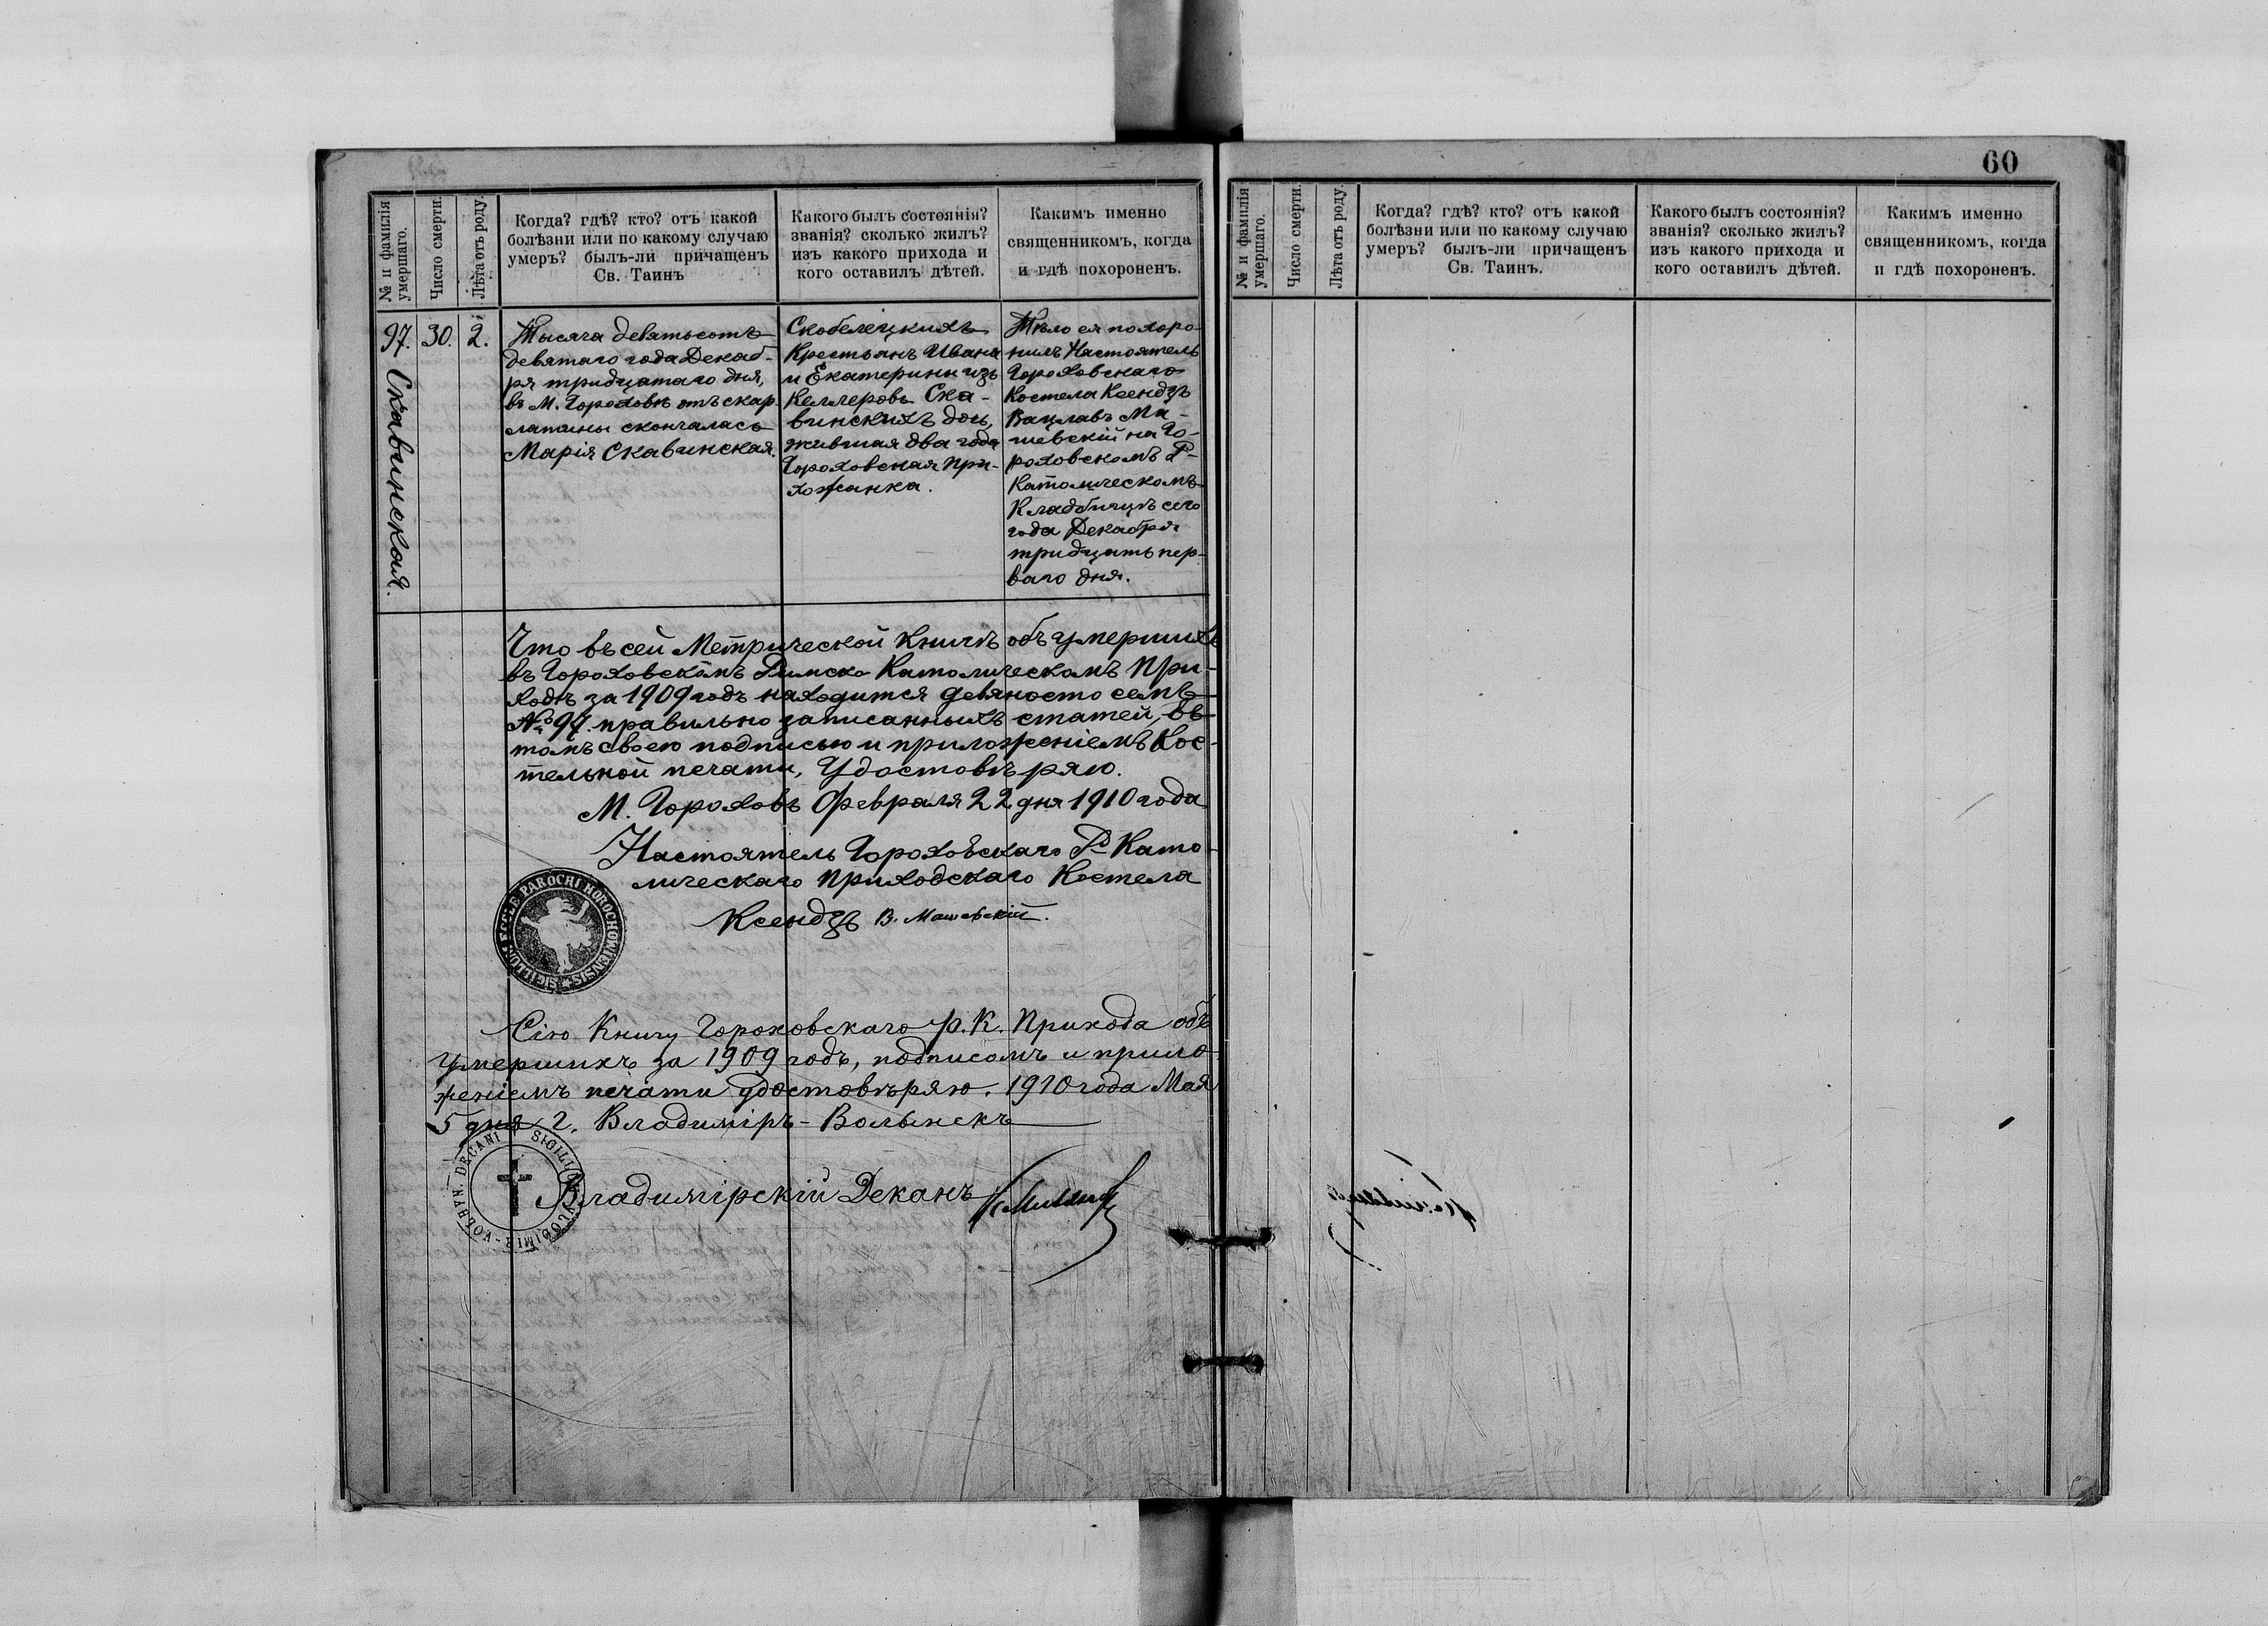 60
№ и фамилія умершаго.
Число смерти.
Лѣта отъ роду.
Когда? гдѣ? кто? отъ какой
болѣзни или по какому случаю
умеръ? былъ-ли причащенъ
Св. Таинъ
Какого былъ состоянія?
званія? сколько жилъ?
изъ какого прихода и
кого оставилъ дѣтей.
Какимъ именно
священникомъ, когда
и гдѣ похороненъ.
97.
Скавинская.
30.
2.
Тысяча девятьсотъ
девятаго года Декаб-
ря тридцатаго дня,
въ М. Гороховѣ отъ скар-
латины скончалась
Марія Скавинская.
Скобелецкихъ
Крестьянъ Ивана
и Екатерины изъ
Келлеровъ Ска-
винскихъ дочь,
жившая два года
Гороховская при-
хожанка.
Тѣло ея похоро-
нилъ Настоятель
Гороховскаго
Костела Ксендзъ
Вацлавъ Ма-
шевскій на Го-
роховскомъ Р-
Католическомъ
Кладбищѣ сего
года Декабря
тридцать пер-
ваго дня.
Что въ сей Метрической Книгѣ объ умершихъ
въ Гороховскомъ Римско Католическомъ При-
ходѣ за 1909 годъ находится девяносто семь
№ 97. правильно записанныхъ статей, въ
томъ своею подписью и приложеніемъ Кос-
тельной печати, Удостовѣряю.
М. Гороховъ Февраля 22 дня 1910 года
Настоятель Гороховскаго Р. Като-
лическаго Приходскаго Костела
Ксендзъ В. Машевскій.
SIGILLUM ECCLE PAROCHI HOROCHOWIENSIS
Сію Книгу Гороховскаго Р. К. Прихода объ
умершихъ за 1909 годъ, подписомъ и прило-
женіемъ печати удостовѣряю. 1910 года Мая
5 дня г. Владиміръ-Волынскъ
Владимірскій Деканъ
SIGILL VLODIMIR-VOLHYN. DECANI
№ и фамилія умершаго.
Число смерти.
Лѣта отъ роду.
Когда? гдѣ? кто? отъ какой
болѣзни или по какому случаю
умеръ? былъ-ли причащенъ
Св. Таинъ.
Какого былъ состоянія?
званія? сколько жилъ?
изъ какого прихода и
кого оставилъ дѣтей.
Какимъ именно
священникомъ, когда
и гдѣ похороненъ.